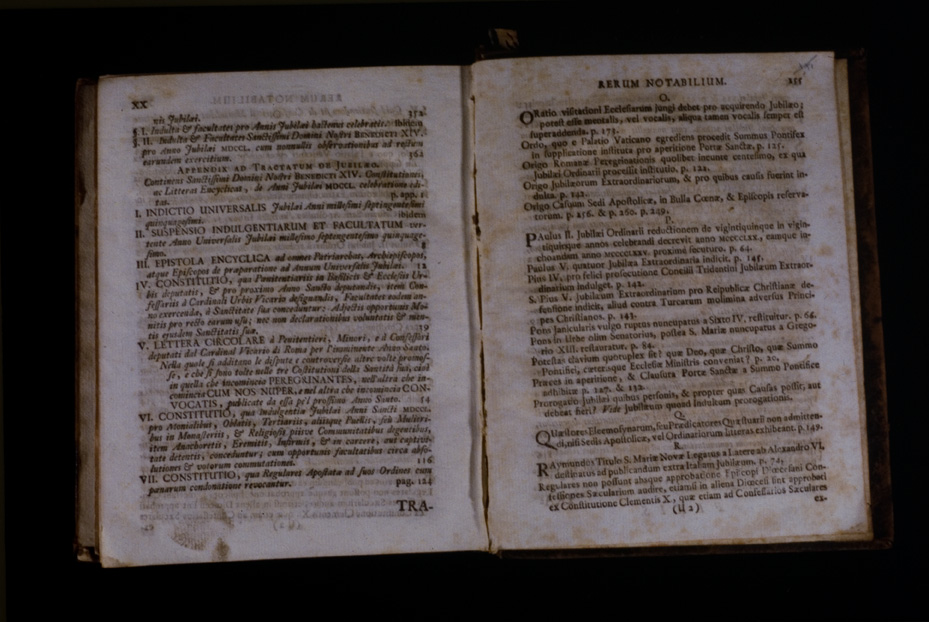 XX
vit Jubilai. 352
§. I. Indulta & facultates pro Annis Jubilai hactenus celebratis. ibidem
§. II. Indulta & Facultates Sanctissimi Domini Nostri BENEDICTI XIV.
pro Anno Jubilai MDCCL. cum nonnullis observationibus ad rectum
earundem exercitium. 362
APPENDIX AD TRACTATUM DE JUBILÆO.
Continens Sanctissimi Domini Nostri BENEDICTI XIV. Constitutiones,
ac Litteras Encyclicas, de Anni Jubilai MDCCL. celebratione edi-
tas. p. app. 1
I. INDICTIO UNIVERSALIS Jubilai Anni millesimi septingentesimi
quinquagesimi. ibidem
II. SUSPENSIO INDULGENTIARUM ET FACULTATUM ver-
tente Anno Universalis Jubilai millesimo septingentesimo quinquage-
simo. 8
III. EPISTOLA ENCYCLICA ad omnes Patriarchas, Archiepiscopos,
atque Episcopos de præparatione ad Annum Universalis Jubilai. 12
IV. CONSTITUTIO, qua Pœnitentiariis in Basilicis & Ecclesiis Ur-
bis deputatis, & pro proximo Anno Sancto deputandis, item Con-
fessariis à Cardinali Urbis Vicario designandis, Facultates eodem an-
no exercenda, à Sanctitate sua conceduntur: Adjectis opportunis Mo-
nitis pro recto earum usu; nec non declarationibus voluntatis & men-
tis ejusdem Sanctitatis suæ. 19
V. LETTERA CIRCOLARE à Penitentieri, Minori, e à Confessori
deputati dal Cardinal Vicario di Roma per l'imminente ANNO SANTO.
Nella quale si additano le dispute e controversie altre volte promos-
se, e che si sono tolte nelle tre Costituzioni della Santità sua, cioè
in quella che incomincia PEREGRINANTES, nell'altra che in-
comincia CUM NOS NUPER, e nel altra che incomincia CON-
VOCATIS, publicate da essa pel prossimo Anno Santo. 54
VI. CONSTITUTIO, qua Indulgentiæ Jubilai Anni Sancti MDCCL.
pro Monialibus, Oblatis, Tertiariis, aliisque Puellis, sive Mulieri-
bus in Monasteriis, & Religiosis piisve Communitatibus degentibus,
item Anachoretis, Eremitis, Infirmis, & in carcere, aut captivi-
tate detentis, conceduntur; cum opportunis facultatibus circa abso-
lutiones & votorum commutationes. 116
VII. CONSTITUTIO, qua Regulares Apostatæ ad suos Ordines cum
pœnarum condonatione revocantur. pag. 124
TRA-
RERUM NOTABILIUM. 255
O.
ORatio visitationi Ecclesiarum jungi debet pro acquirendo Jubilæo;
potest esse mentalis, vel vocalis, aliqua tamen vocalis semper est
superaddenda. p. 173.
Ordo, quo e Palatio Vaticano egrediens procesit Summus Pontifex
in supplicatione instituta pro aperitione Portæ Sanctæ. p. 125.
Origo Romanæ Peregrinationis quolibet ineunte centesimo, ex qua
Jubilæi Ordinarii processit institutio. p. 122.
Origo Jubilæorum Extraordinariorum, & pro quibus causis fuerint in-
dulta. p. 142.
Origo Casuum Sedi Apostolicæ, in Bulla Cœnæ, & Episcopis reserva-
torum. p. 256. & p. 260. p. 249.
P.
PAulus II. Jubilæi Ordinarii reductionem de vigintiquinque in vigin-
tiquinque annos celebrandi decrevit anno MCCCCLXX, eamque in-
choandam anno MCCCCLXXV. proxime secuturo. p. 64.
Paulus V. quatuor Jubilæa Extraordinaria indicit. p. 145.
Pius IV. pro felici prosecutione Concilii Tridentini Jubilæum Extraor-
dinarium indulget. p. 142.
S. Pius V. Jubilæum Extraordinarium pro Reipublicæ Christianæ de-
fensione indicit, aliud contra Turcarum molimina adversus Princi-
pes Christianos. p. 143.
Pons Janicularis vulgo ruptus nuncupatus a Sixto IV. restituitur. p. 64.
Pons in Urbe olim Senatorius, postea S. Mariæ nuncupatus a Grego-
rio XIII. restauratur. p. 84.
Potestas clavium quotuplex sit? quæ Deo, quæ Christo, quæ Summo
Pontifici, cæterisque Ecclesiæ Ministris conveniat? p. 20.
Præces in aperitione, & Clausura Portæ Sanctæ a Summo Pontifice
adhibitæ p. 127. & 132.
Prorogatio Jubilæi quibus personis, & propter quæ Causas possit, aut
debeat fieri? Vide Jubilæum quoad Indultum prorogationis.
Q.
QUæstores Eleemosynarum, seu Prædicatores Quæstuarii non admitten-
di, nisi Sedis Apostolicæ, vel Ordinariorum litteras exhibeant. p. 149.
R.
RAymundus Titulo S. Mariæ Novæ Legatus a Latere ab Alexandro VI.
destinatus ad publicandum extra Italiam Jubilæum. p. 74.
Regulares non possunt absque approbatione Episcopi Diœcesani Con-
fessiones Sæcularium audire, etiamsi in aliena Diœcesi sint approbati
ex Constitutione Clementis X, quæ etiam ad Confessarios Sæculares
(Ll 2) ex-